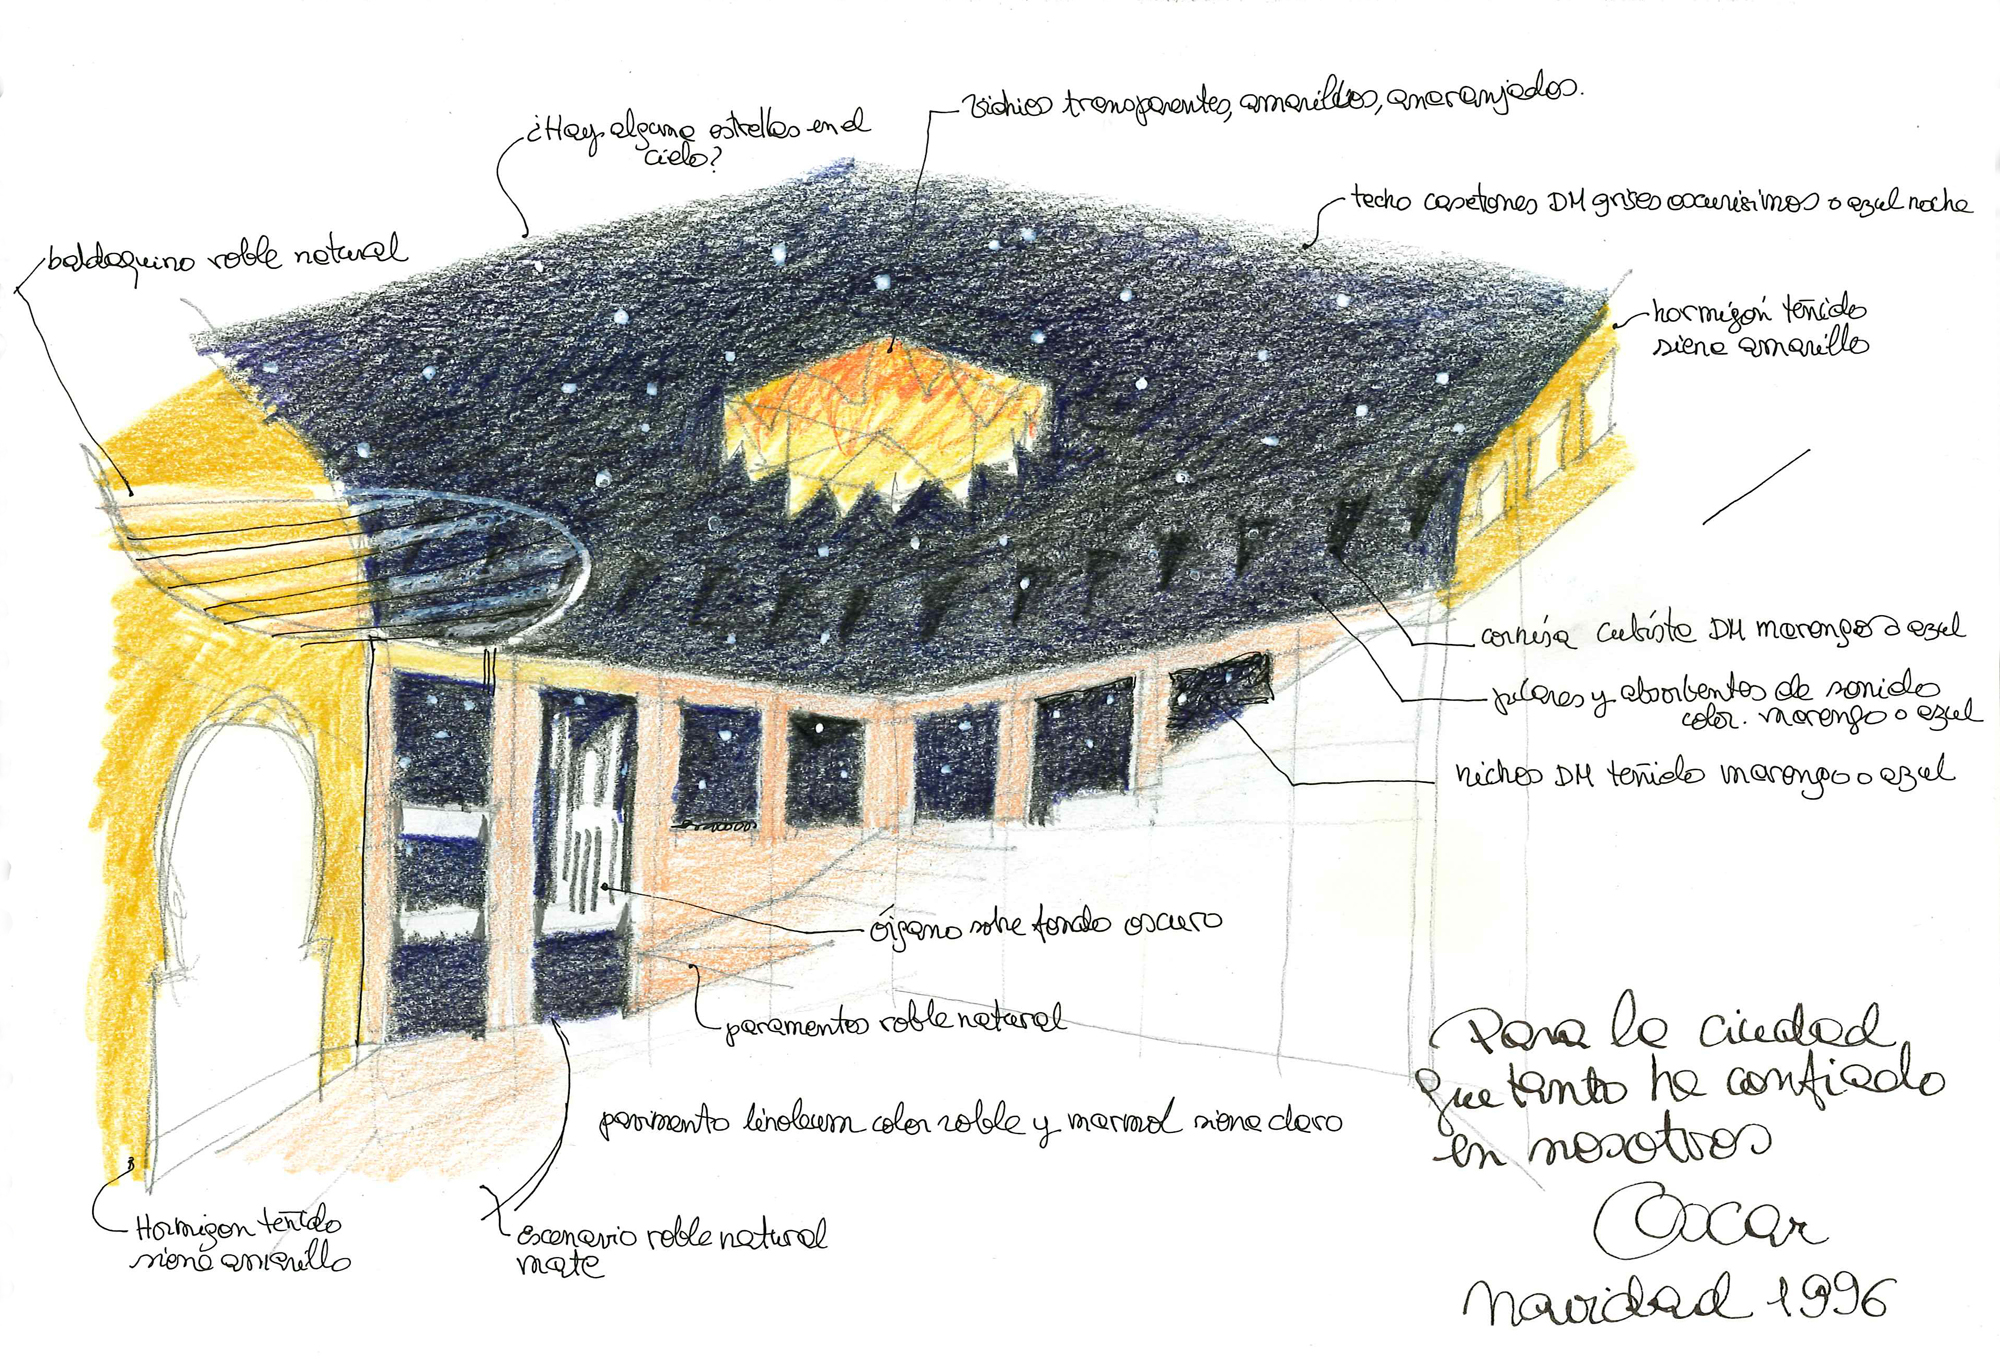 ¿Hay alguna estrellas en el
cielo?
vidrios transparentes, amarillos, anaranjados.
techo casetones DM grises oscurisimos o azul noche
baldaquino roble natural
hormigón teñido
siena amarillo
cornisa cubista DM marengo o azul
pilares y absorbentes de sonido
color. marengo o azul
nichos DM teñido marengo o azul
órgano sobre fondo oscuro
paramentos roble natural
pavimento linoleum color roble y marmol siena claro
Hormigon teñido
siena amarillo
escenario roble natural
mate
Para la ciudad
que tanto ha confiado
en nosotros
Oscar
Navidad 1996